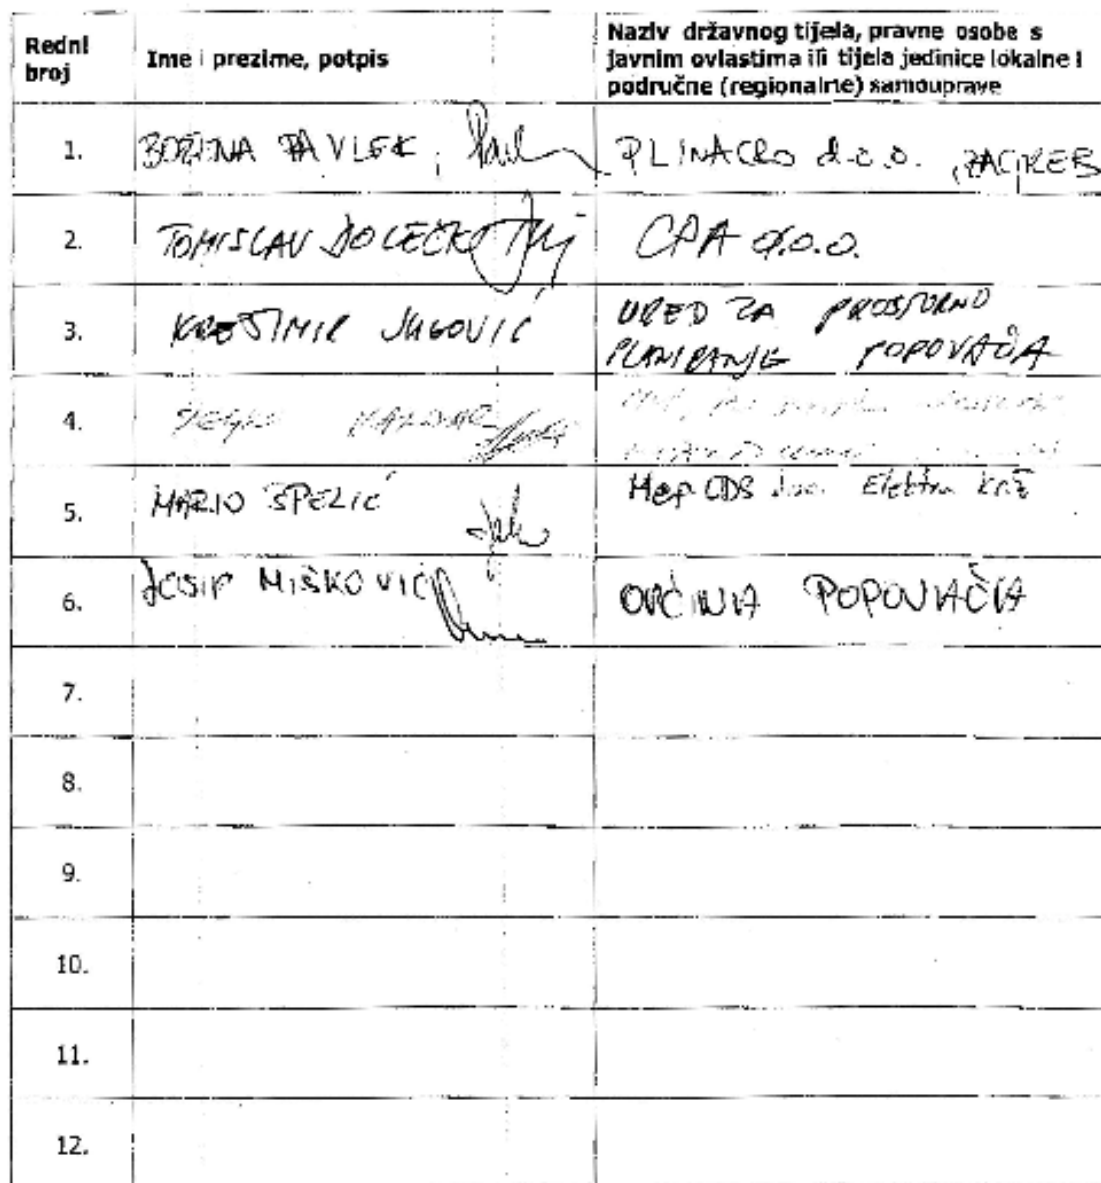 Redni broj
Ime i prezime, potpis
Naziv državnog tijela, pravne osobe s
javnim ovlastima ili tijela jedinice lokalne i
područne (regionalne) samouprave
1. BOŽENA PAVLEK, PLINACRO d.o.o., ZAGREB
2. TOMISLAV DOLEČKI CPA d.o.o.
3. KREŠIMIR JUGOVIĆ URED ZA PROSTORNO
PLANIRANJE POPOVAČA
4.
5. MARIO ŠPELIĆ Hep ODS d.o.o. Elektra Križ
6. JOSIP MIŠKOVIĆ OPĆINA POPOVAČA
7.
8.
9.
10.
11.
12.